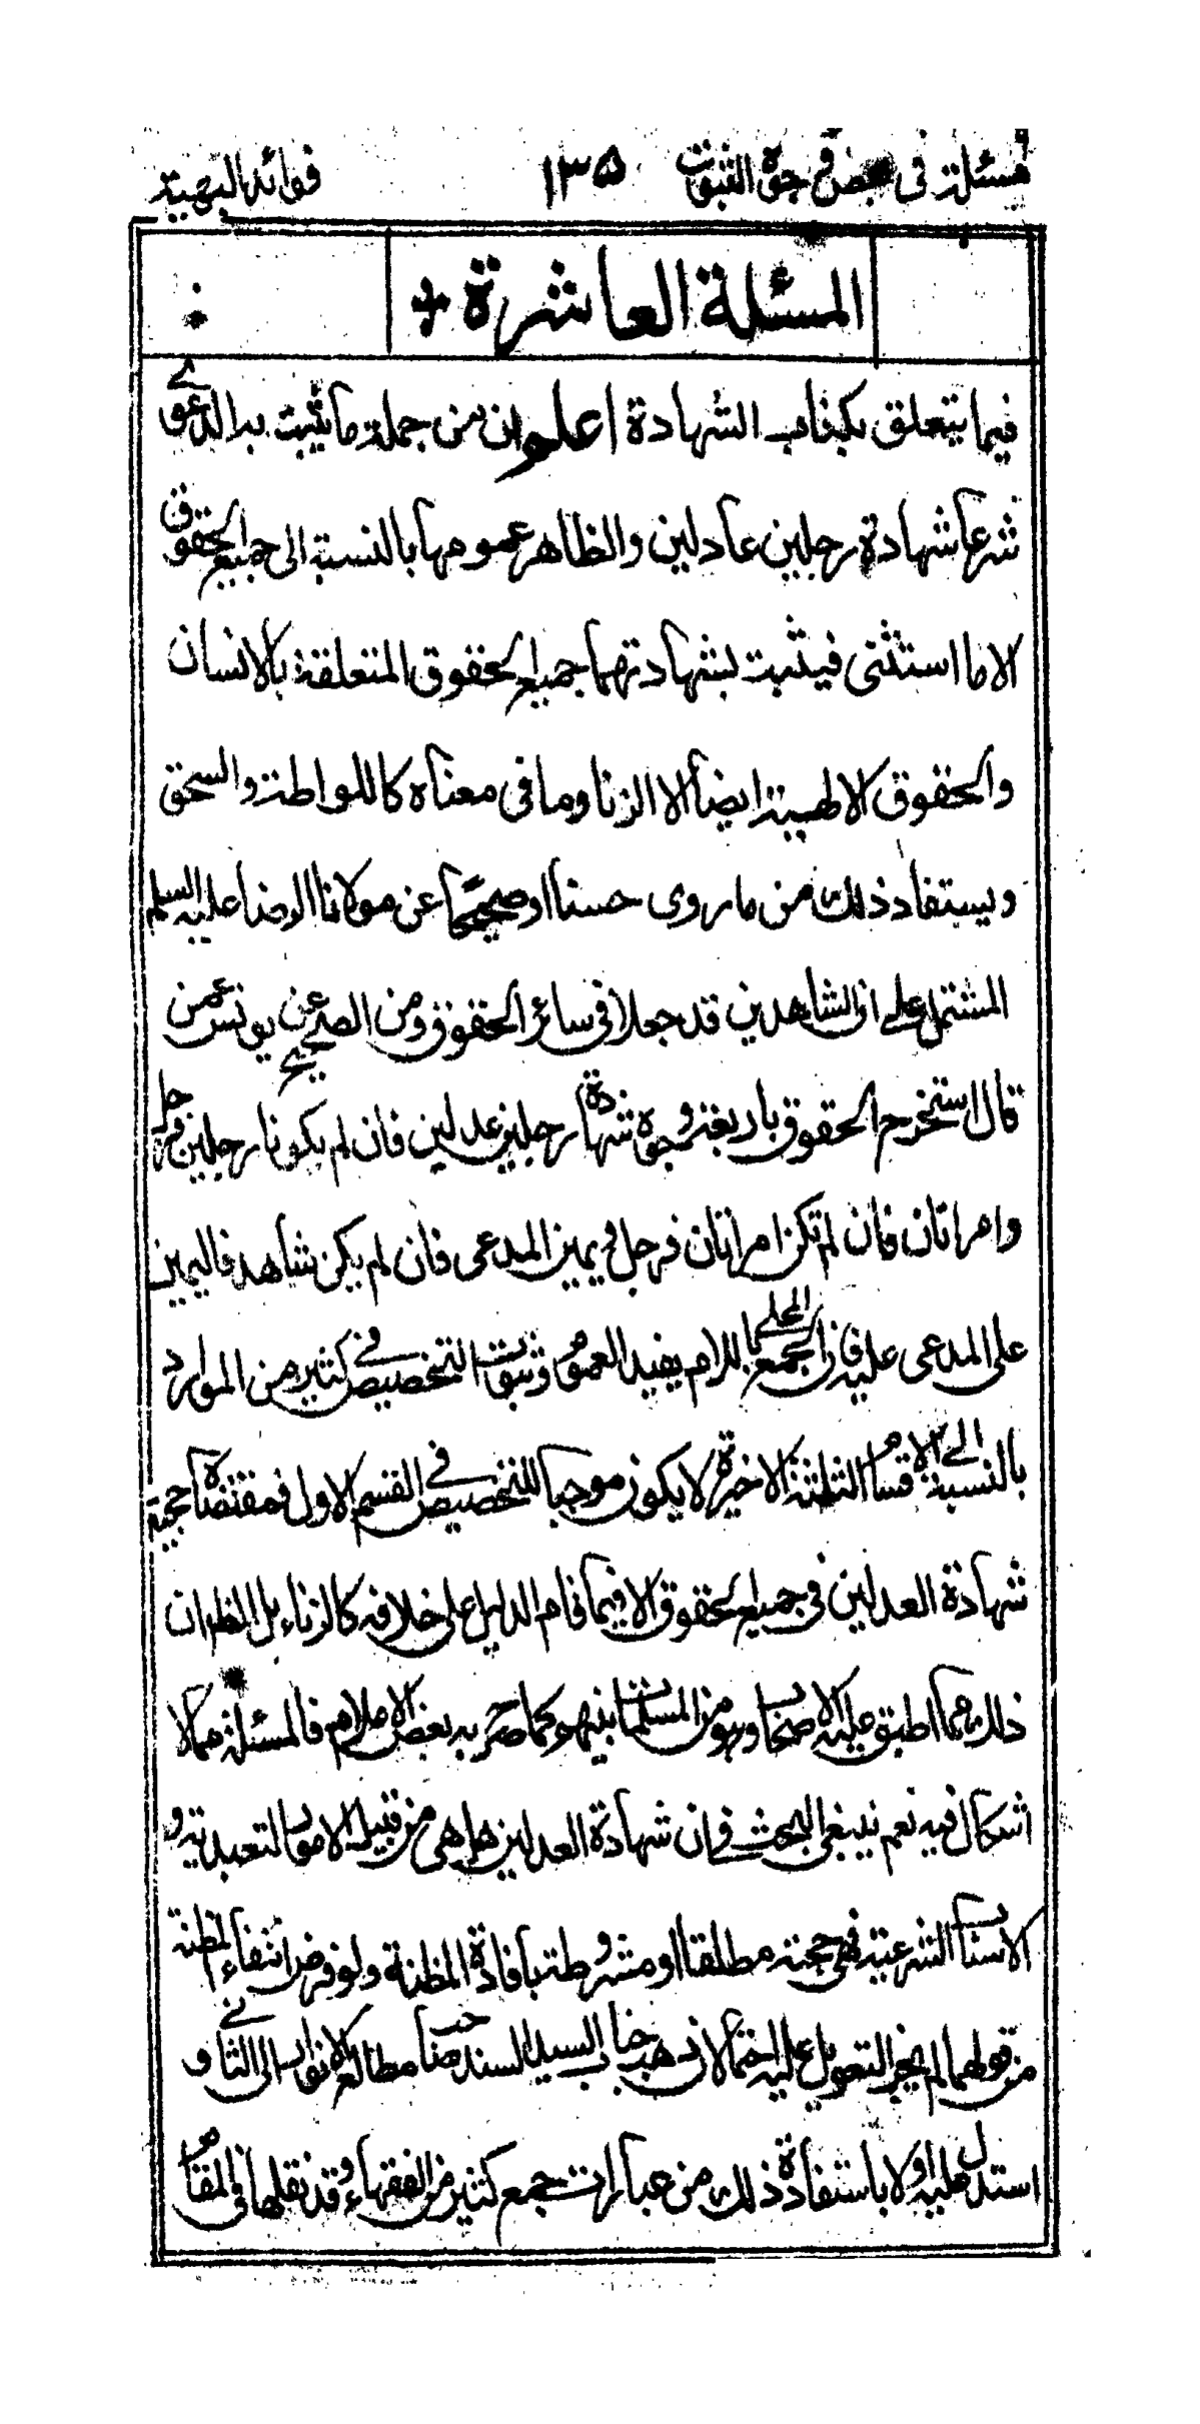 مسئلة فى بعض وجوه الثبوت ١٣٥ فوائد البهية
المسئلة العاشرة
فيما يتعلق بكتاب الشهادة اعلم ان من جملة ما يثبت به الدعوى
شرعا شهادة رجلين عادلين والظاهر عمومها بالنسبة الى جميع الحقوق
الا ما استثنى فيثبت بشهادتهما جميع الحقوق المتعلقة بالانسان
والحقوق الالهية ايضا الا الزنا وما فى معناه كاللواطة والسحق
ويستفاد ذلك من ما روى حسنا او صحيحا عن مولانا الرضا عليه السلم
المشتمل على ان الشاهدين قد جعلا فى سائر الحقوق ومن الصحيح عن يونس عمن
قال استخرج الحقوق باربعة وجوه شهادة رجلين عدلين فان لم يكونا رجلين فرجل
وامراتان فان لم تكن امراتان فرجل ويمين المدعى فان لم يكن شاهد فاليمين
على المدعى عليه فان الجمع المحلى باللام يفيد العموم وثبوت التخصيص فى كثير من الموارد
بالنسبة الى الاقسام الثلثة الاخيرة لا يكون موجبا للتخصيص فى القسم الاول فمقتضاه حجية
شهادة العدلين فى جميع الحقوق الا فيما قام الدليل على خلافه كالزناء بل الظاهر ان
ذلك مما اطبق عليه الاصحاب وهو من المسلمات بينهم كما صرح به بعض الاعلام فالمسئلة مما لا
اشكال فيه نعم ينبغى البحث فى ان شهادة العدلين هل هى من قبيل الامور التعبدية و
الاسباب الشرعية فهى حجة مطلقا او مشروطة بافادة المظنة ولو فرض انتفاء المظنة
من قولهما لم يجز التعويل عليه احتمالان ذهب جناب السيد السند صاحب مطالع الانوار الى الثانى و
استدل عليه اولا باستفادة ذلك من عبارات جمع كثير من الفقهاء وقد نقلها فى المقام